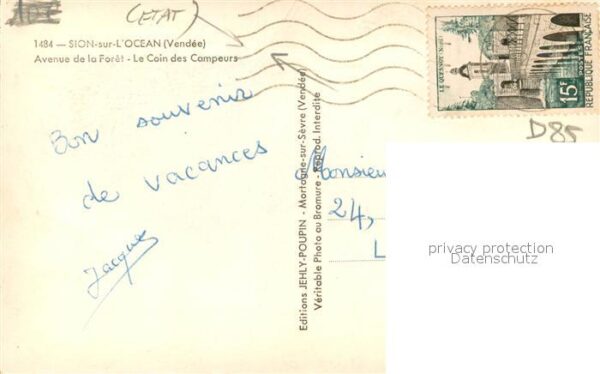 (ETAT)
1484 — SION-sur-L'OCEAN (Vendée)
Avenue de la Forêt - Le Coin des Campeurs
Bon souvenir
de vacances
Jacques
Editions JEHLY-POUPIN - Mortagne-sur-Sèvre (Vendée)
Véritable Photo au Bromure - Reprod. Interdite
Monsieur
24,
L
LE QUESNOY (Nord)
15F
POSTES
REPUBLIQUE FRANÇAISE
D85
privacy protection
Datenschutz